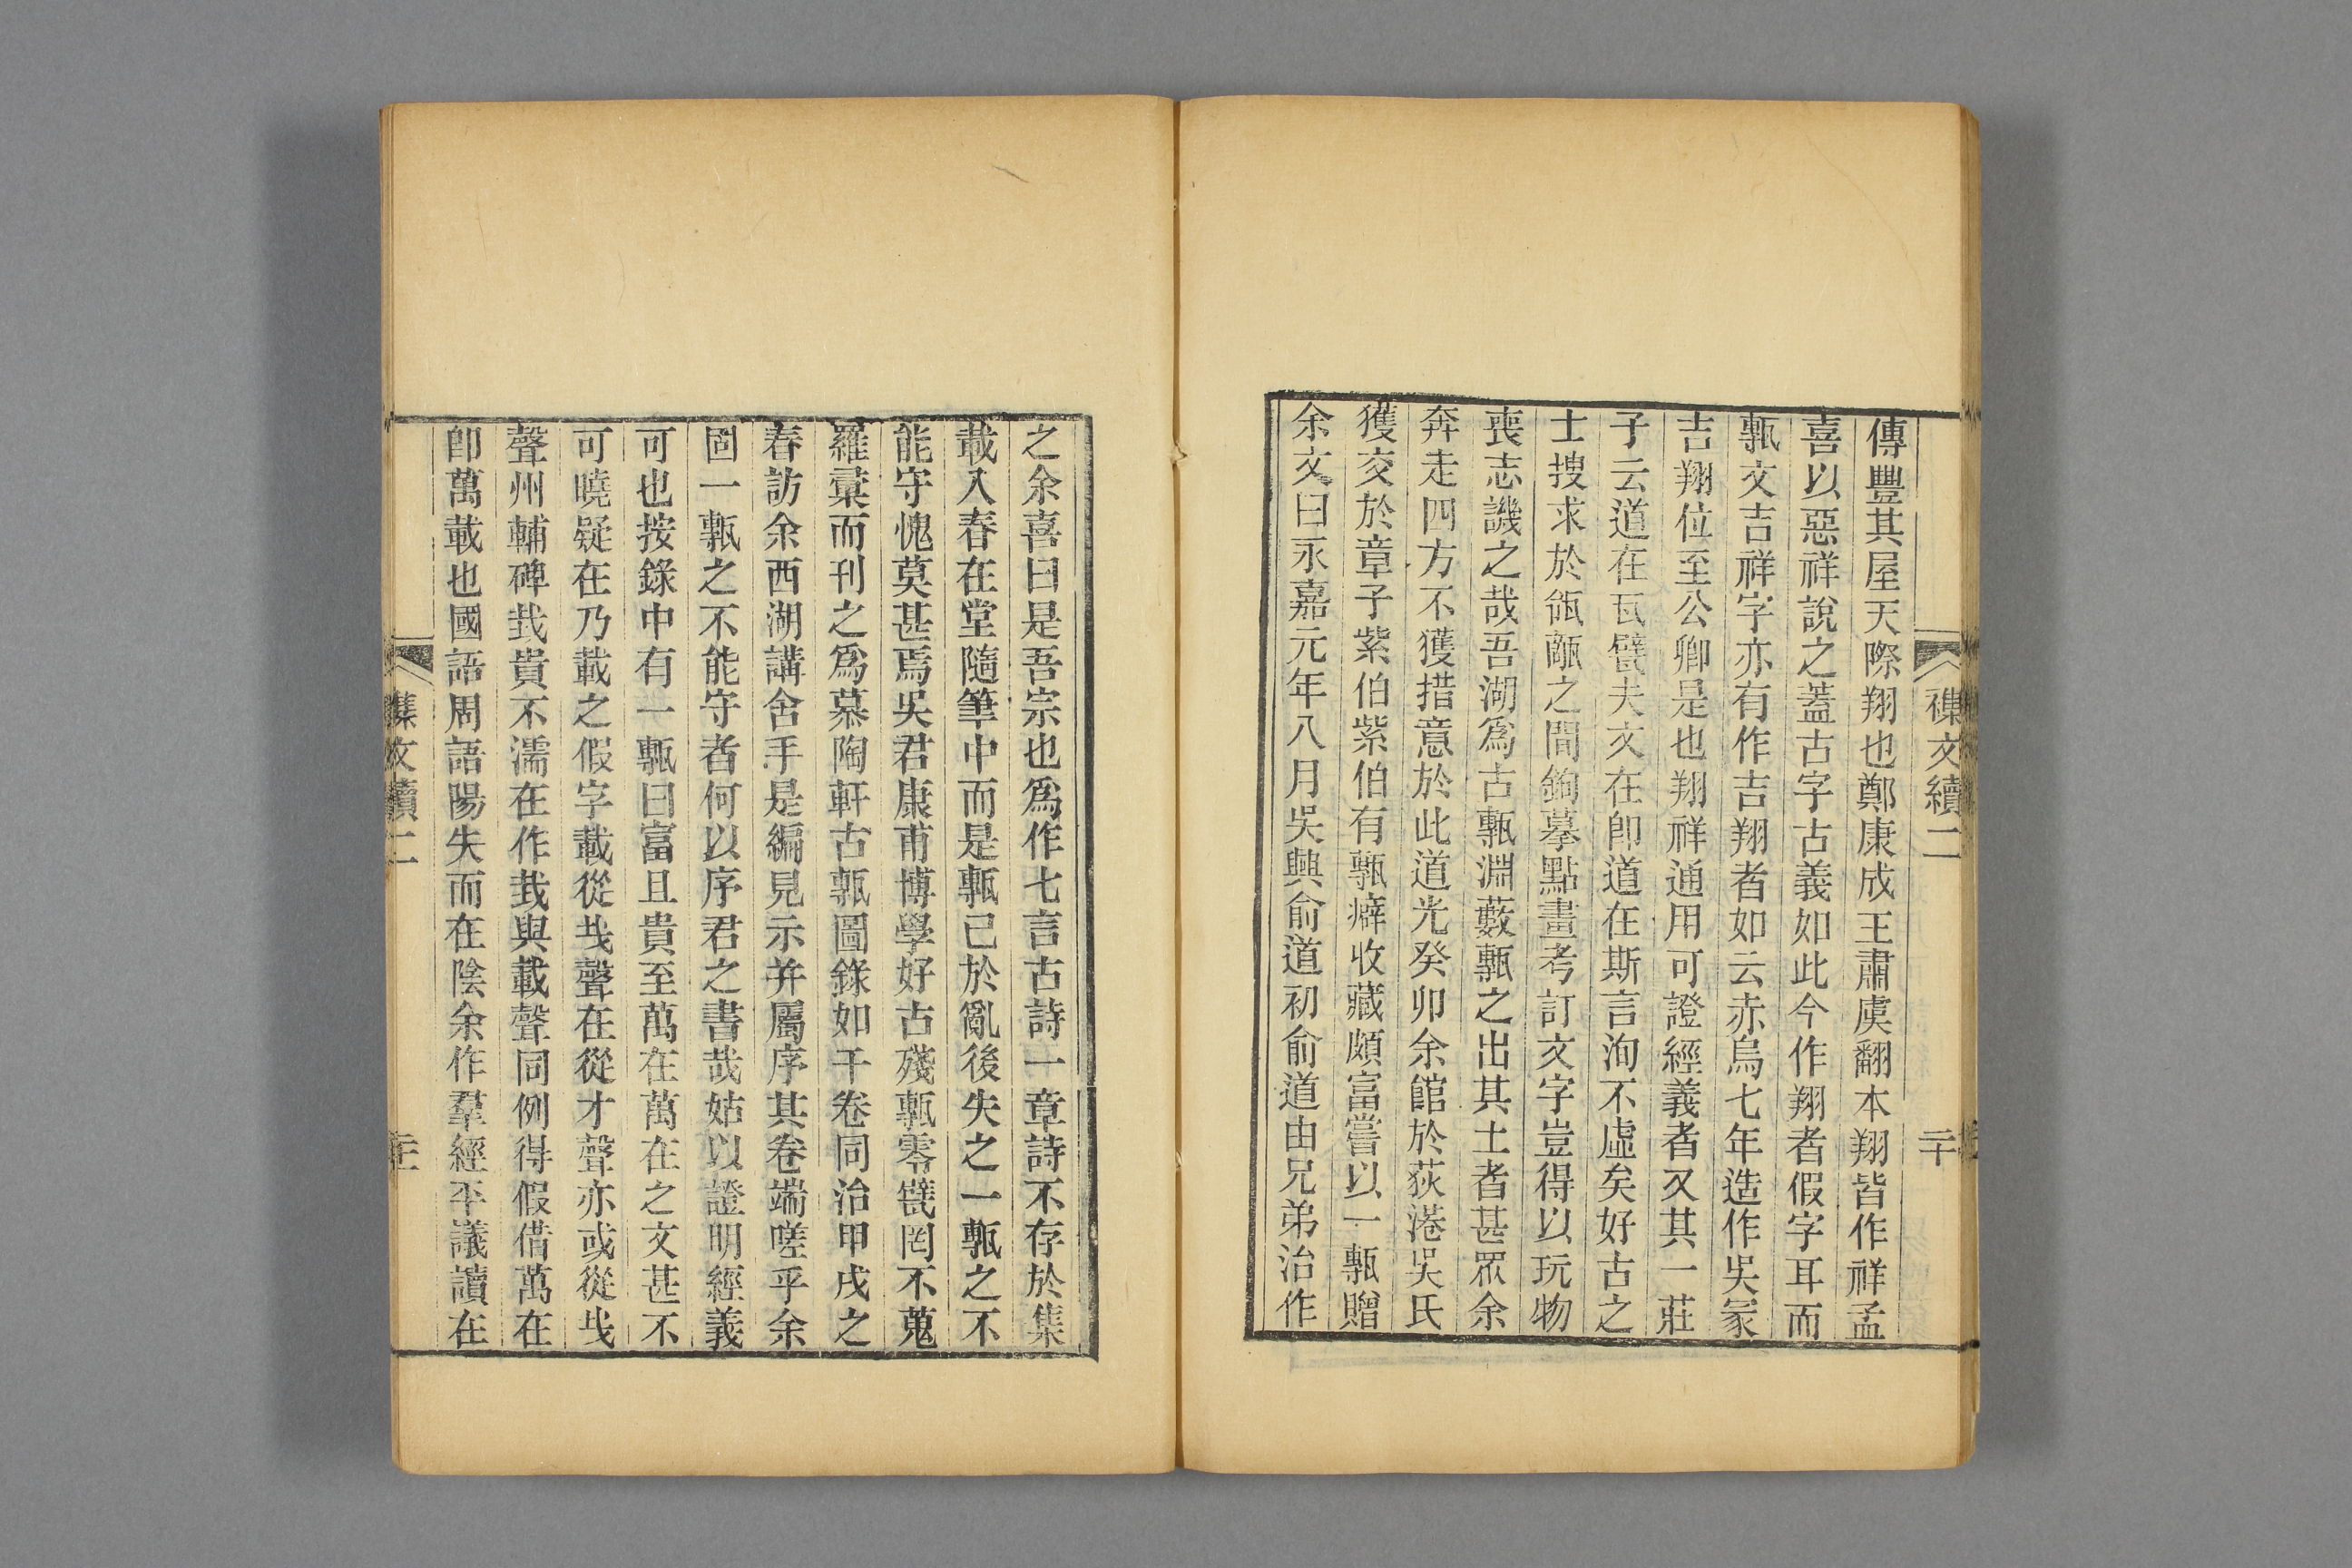 襍文續二
二十
傳豐其屋天際翔也鄭康成王肅虞翻本翔皆作祥孟
喜以惡祥說之蓋古字古義如此今作翔者假字耳而
甎文吉祥字亦有作吉翔者如云赤烏七年造作吳冡
吉翔位至公卿是也翔祥通用可證經義者又其一莊
子云道在瓦甓夫文在卽道在斯言洵不虛矣好古之
士搜求於瓴甋之間鉤摹點畫考訂文字豈得以玩物
喪志譏之哉吾湖爲古甎淵藪甎之出其土者甚眾余
奔走四方不獲措意於此道光癸卯余館於荻港吳氏
獲交於章子紫伯紫伯有甎癖收藏頗富嘗以一甎贈
余文曰永嘉元年八月吳興俞道初俞道由兄弟治作
之余喜曰是吾宗也爲作七言古詩一章詩不存於集
載入春在堂隨筆中而是甎已於亂後失之一甎之不
能守愧莫甚焉吳君康甫博學好古殘甎零甓罔不蒐
羅彙而刊之爲慕陶軒古甎圖錄如干卷同治甲戌之
春訪余西湖講舍手是編見示并屬序其卷端嗟乎余
固一甎之不能守者何以序君之書哉姑以證明經義
可也按錄中有一甎曰富且貴至萬在萬在之文甚不
可曉疑在乃載之假字載從𢦏聲在從才聲亦或從𢦏
聲州輔碑𢦏貴不濡在作𢦏與載聲同例得假借萬在
卽萬載也國語周語陽失而在陰余作羣經平議讀在
襍文續二